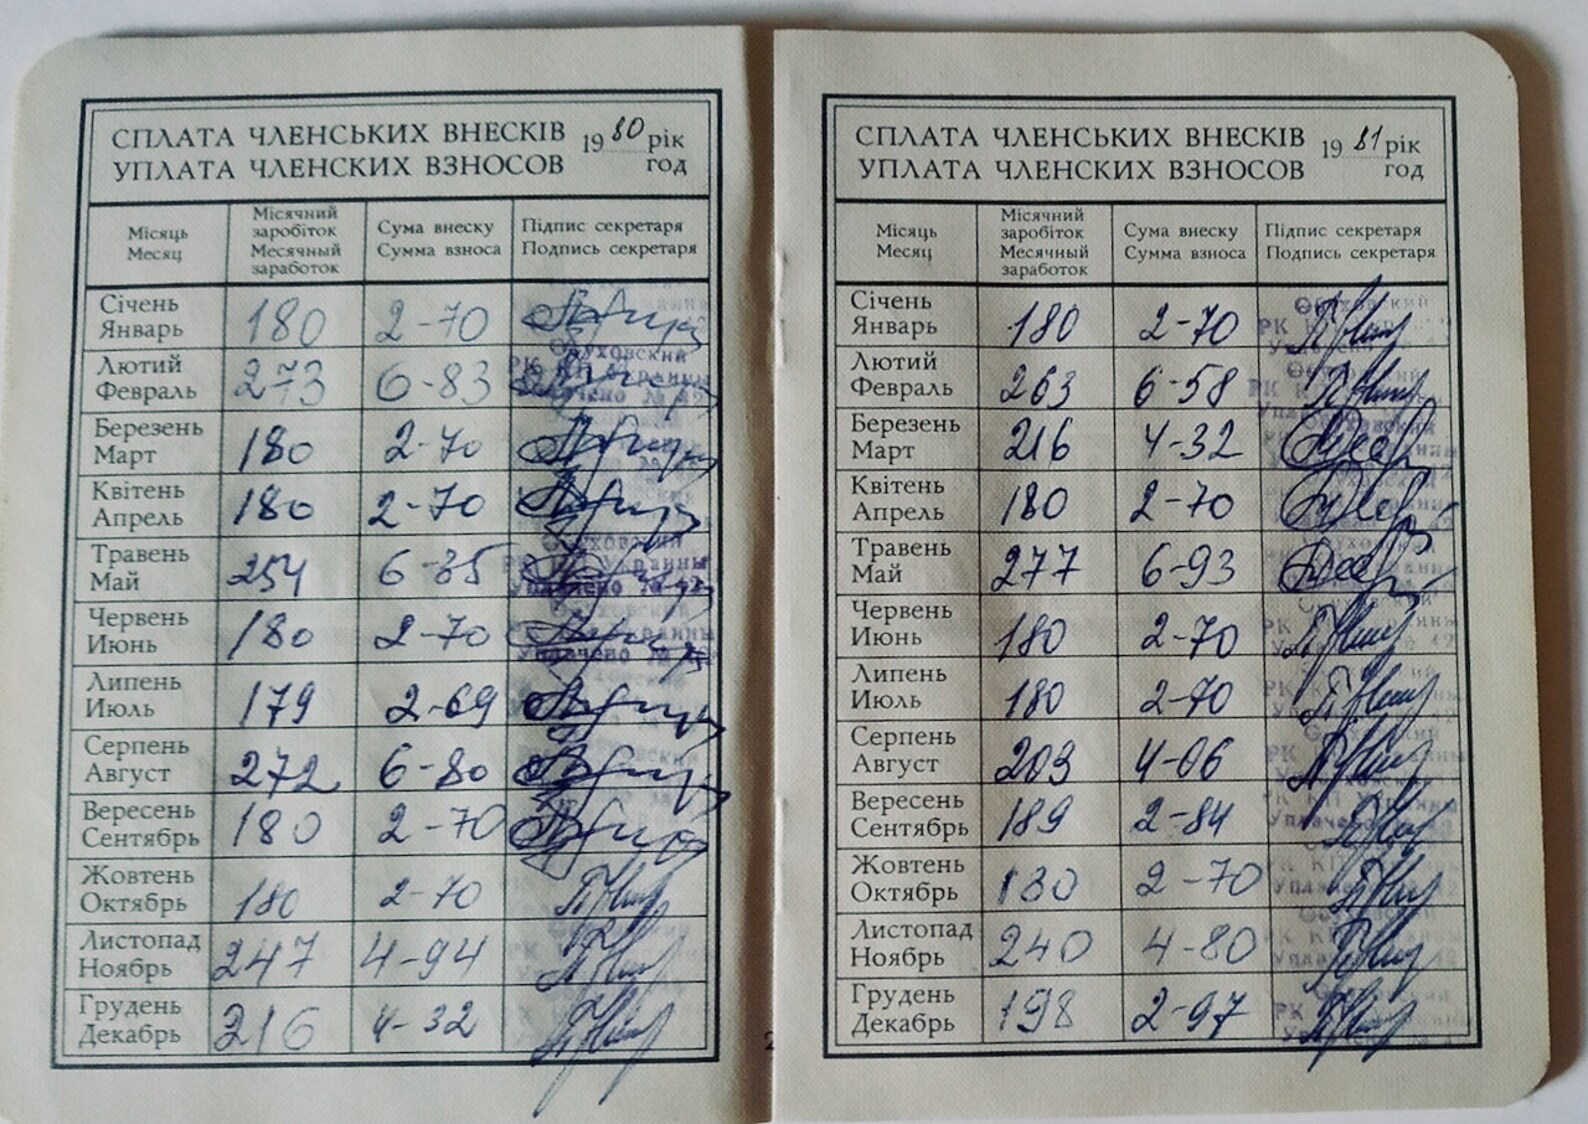 СПЛАТА ЧЛЕНСЬКИХ ВНЕСКІВ 1980 рік
УПЛАТА ЧЛЕНСКИХ ВЗНОСОВ год
Місяць
Месяц
Місячний
заробіток
Месячный
заработок
Сума внеску
Сумма взноса
Підпис секретаря
Подпись секретаря
Січень
Январь 180 2-70
Лютий
Февраль 273 6-83
Березень
Март 180 2-70
Квітень
Апрель 180 2-70
Травень
Май 254 6-35
Червень
Июнь 180 2-70
Липень
Июль 179 2-69
Серпень
Август 272 6-80
Вересень
Сентябрь 180 2-70
Жовтень
Октябрь 180 2-70
Листопад
Ноябрь 247 4-94
Грудень
Декабрь 216 4-32
СПЛАТА ЧЛЕНСЬКИХ ВНЕСКІВ 1981 рік
УПЛАТА ЧЛЕНСКИХ ВЗНОСОВ год
Місяць
Месяц
Місячний
заробіток
Месячный
заработок
Сума внеску
Сумма взноса
Підпис секретаря
Подпись секретаря
Січень
Январь 180 2-70
Лютий
Февраль 263 6-58
Березень
Март 216 4-32
Квітень
Апрель 180 2-70
Травень
Май 277 6-93
Червень
Июнь 180 2-70
Липень
Июль 180 2-70
Серпень
Август 203 4-06
Вересень
Сентябрь 189 2-84
Жовтень
Октябрь 180 2-70
Листопад
Ноябрь 240 4-80
Грудень
Декабрь 198 2-97